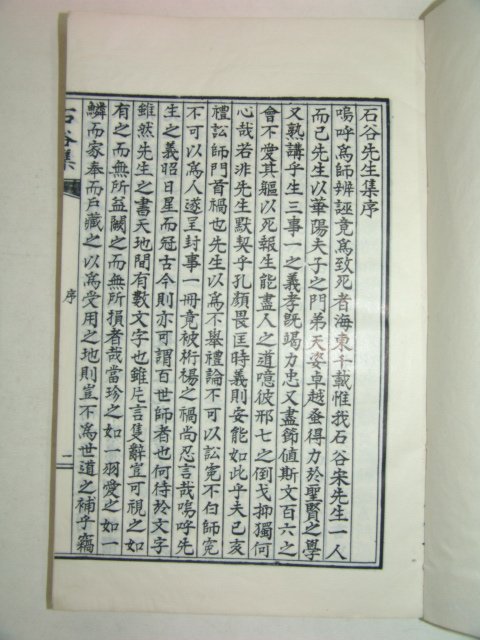 石谷先生集序
嗚呼爲師辨誣竟爲致死者海東千載惟我石谷宋先生一人
而已先生以華陽夫子之門弟天姿卓越蚤得力於聖賢之學
又熟講乎生三事一之義孝旣竭力忠又盡節値斯文百六之
會不愛其軀以死報生能盡人之道噫彼邢七之倒戈抑獨何
心哉若非先生默契乎孔顔畏匡時義則安能如此乎夫己亥
禮訟師門首禍也先生以爲不舉禮論不可以訟寃不白師寃
不可以爲人遂呈封事一冊竟被桁楊之禍尚忍言哉嗚呼先
生之義昭日星而冠古今則亦可謂百世師者也何待於文字
雖然先生之書天地間有數文字也雖片言隻辭豈可視之如
有之而無所益闕之而無所損者哉當珍之如一羽愛之如一
鱗而家奉而戶藏之以爲受用之地則豈不爲世道之補乎竊
石谷集
序
一